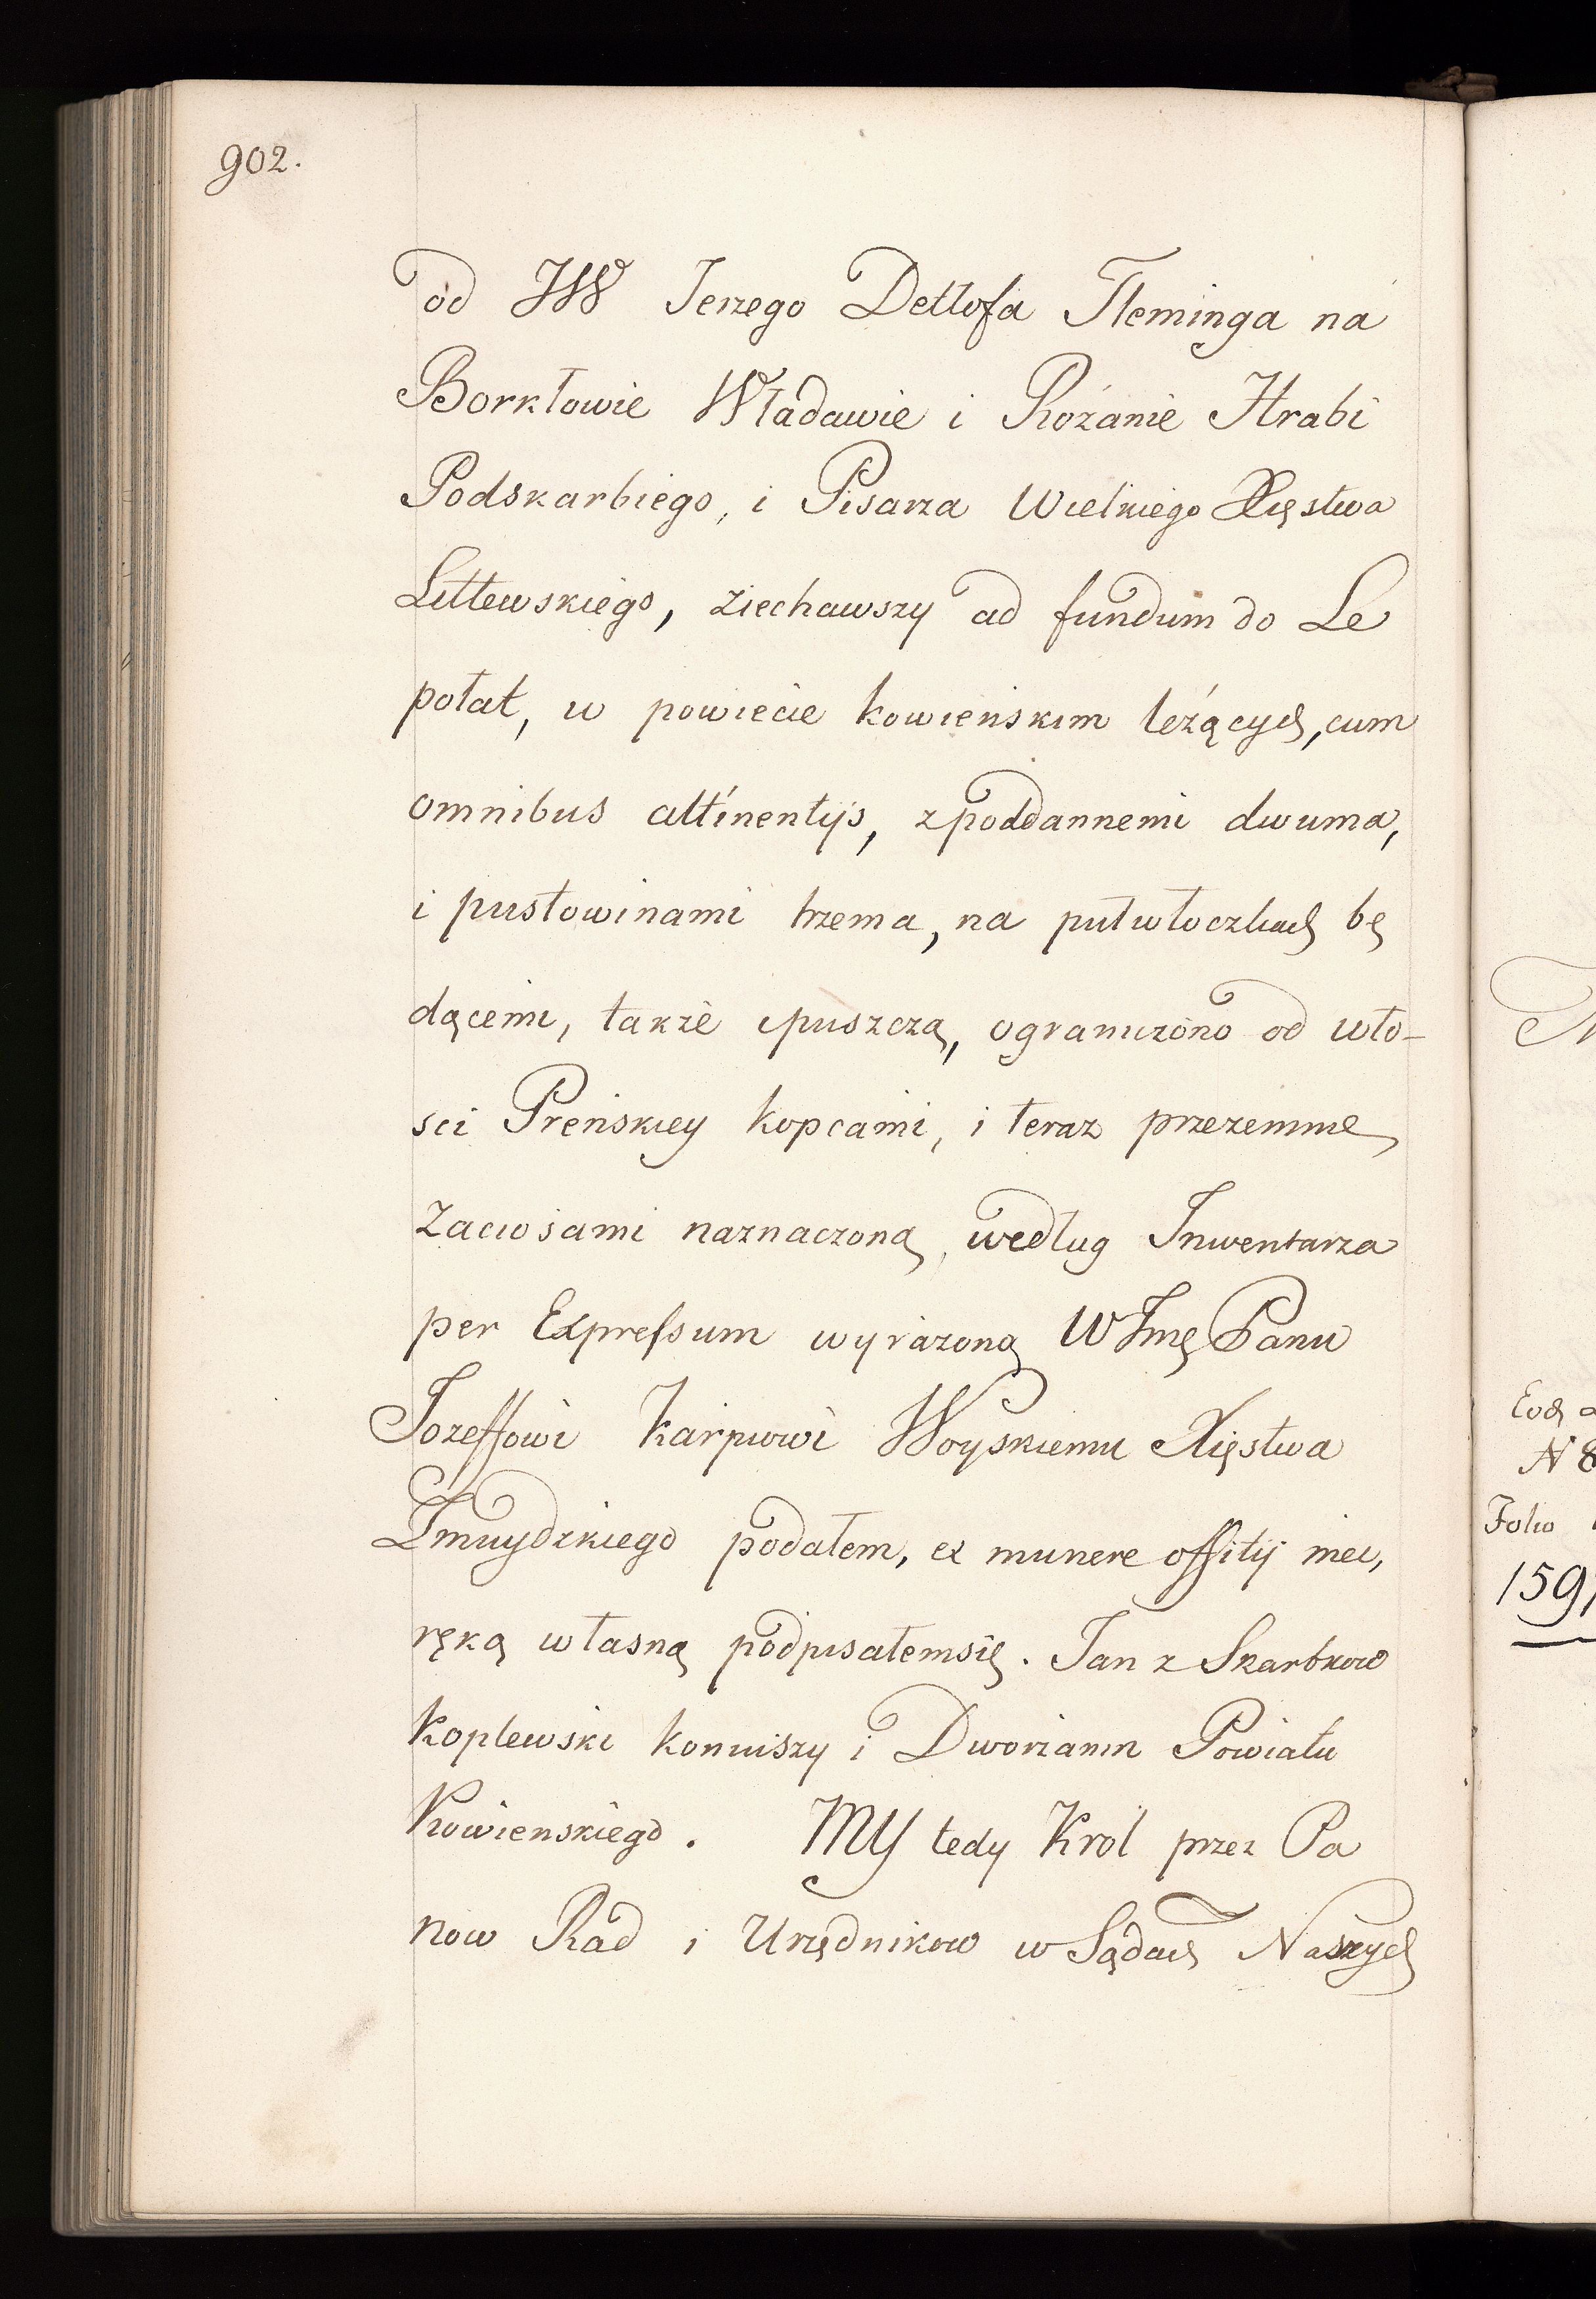 902.
od JW Jerzego Detlofa Fleminga na
Borkłowie Władawie i Rożanie Hrabi
Podskarbiego, i Pisarza Wielkiego Xięstwa
Littewskiego, ziechawszy ad fundum do Le
połat, w powiecie kowieńskim leżących, cum
omnibus attinentijs, z poddannemi dwuma,
i pustowinami trzema, na pułwłoczkach bę
dącemi, także i puszczą, ograniczono od wło-
sci Preńskiey kopcami, i teraz przezemnie
zaciosami naznaczoną, według Inwentarza
per Expressum wyrażoną W Jmę Panu
Jozeffowi Karpiowi Woyskiemu Xięstwa
Żmuydzkiego podałem, ex munere offitij mei,
ręką własną podpisałemsię. Jan z Skarbkow
Koplewski koniuszy i Dworzanin Powiatu
Kowienskiego. MY tedy Krol przez Pa
now Rad i Urzędnikow w Sądach Naszych
Folio
1591